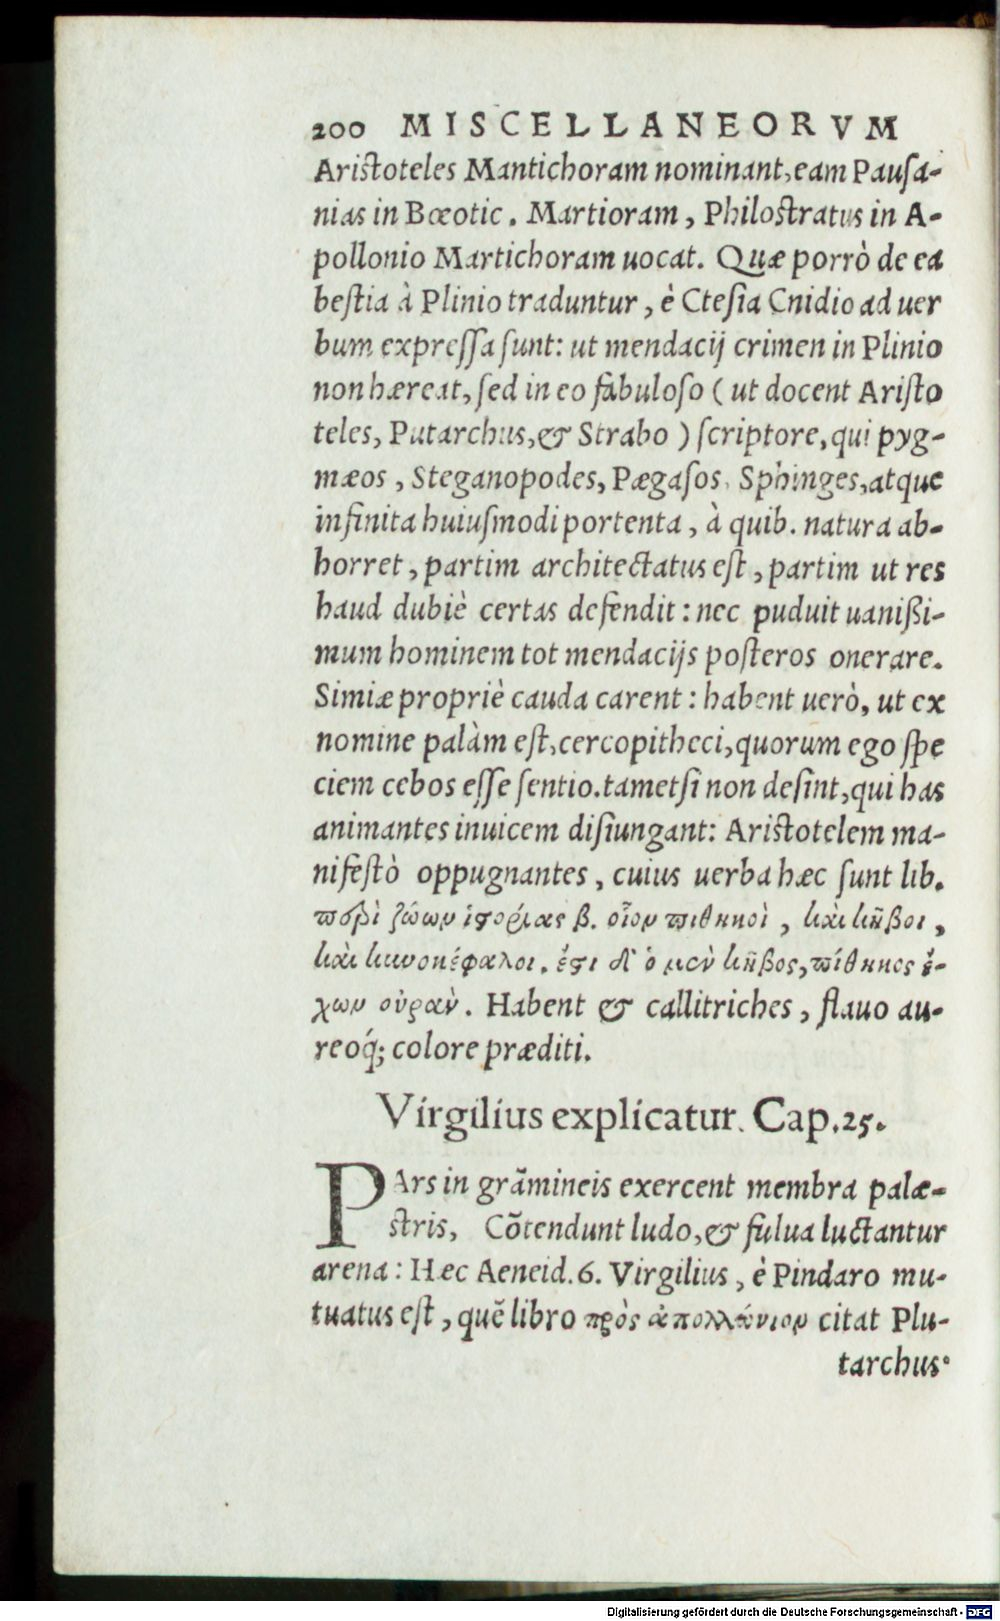 200 MISCELLANEORVM
Aristoteles Mantichoram nominant, eam Pausa-
nias in Bœotic. Martioram, Philostratus in A-
pollonio Martichoram uocat. Quæ porrò de ea
bestia à Plinio traduntur, è Ctesia Cnidio ad uer
bum expressa sunt: ut mendacij crimen in Plinio
non hæreat, sed in eo fabuloso ( ut docent Aristo
teles, Putarchus, & Strabo ) scriptore, qui pyg-
mæos, Steganopodes, Pægasos, Sphinges, atque
infinita huiusmodi portenta, à quib. natura ab-
horret, partim architectatus est, partim ut res
haud dubiè certas defendit: nec puduit uanißi-
mum hominem tot mendacijs posteros onerare.
Simiæ propriè cauda carent: habent uerò, ut ex
nomine palàm est, cercopitheci, quorum ego spe
ciem cebos esse sentio. tametsi non desint, qui has
animantes inuicem disiungant: Aristotelem ma-
nifestò oppugnantes, cuius uerba hæc sunt lib.
περὶ ζώων ἱστορίας β. οἷον πιθηκοὶ, καὶ κῆβοι,
καὶ κυνοκέφαλοι. ἔστι δ' ὁ μεν κῆβος, πίθηκος ἔ-
χων οὐραν. Habent & callitriches, flauo au-
reoq́; colore præditi.
Virgilius explicatur. Cap. 25.
PArs in grãmineis exercent membra palæ-
stris, Cõtendunt ludo, & fulua luctantur
arena: Hæc Aeneid. 6. Virgilius, è Pindaro mu-
tuatus est, quẽ libro πρὸς ἀπολλώνιον citat Plu-
tarchus
Digitalisierung gefördert durch die Deutsche Forschungsgemeinschaft - DFG